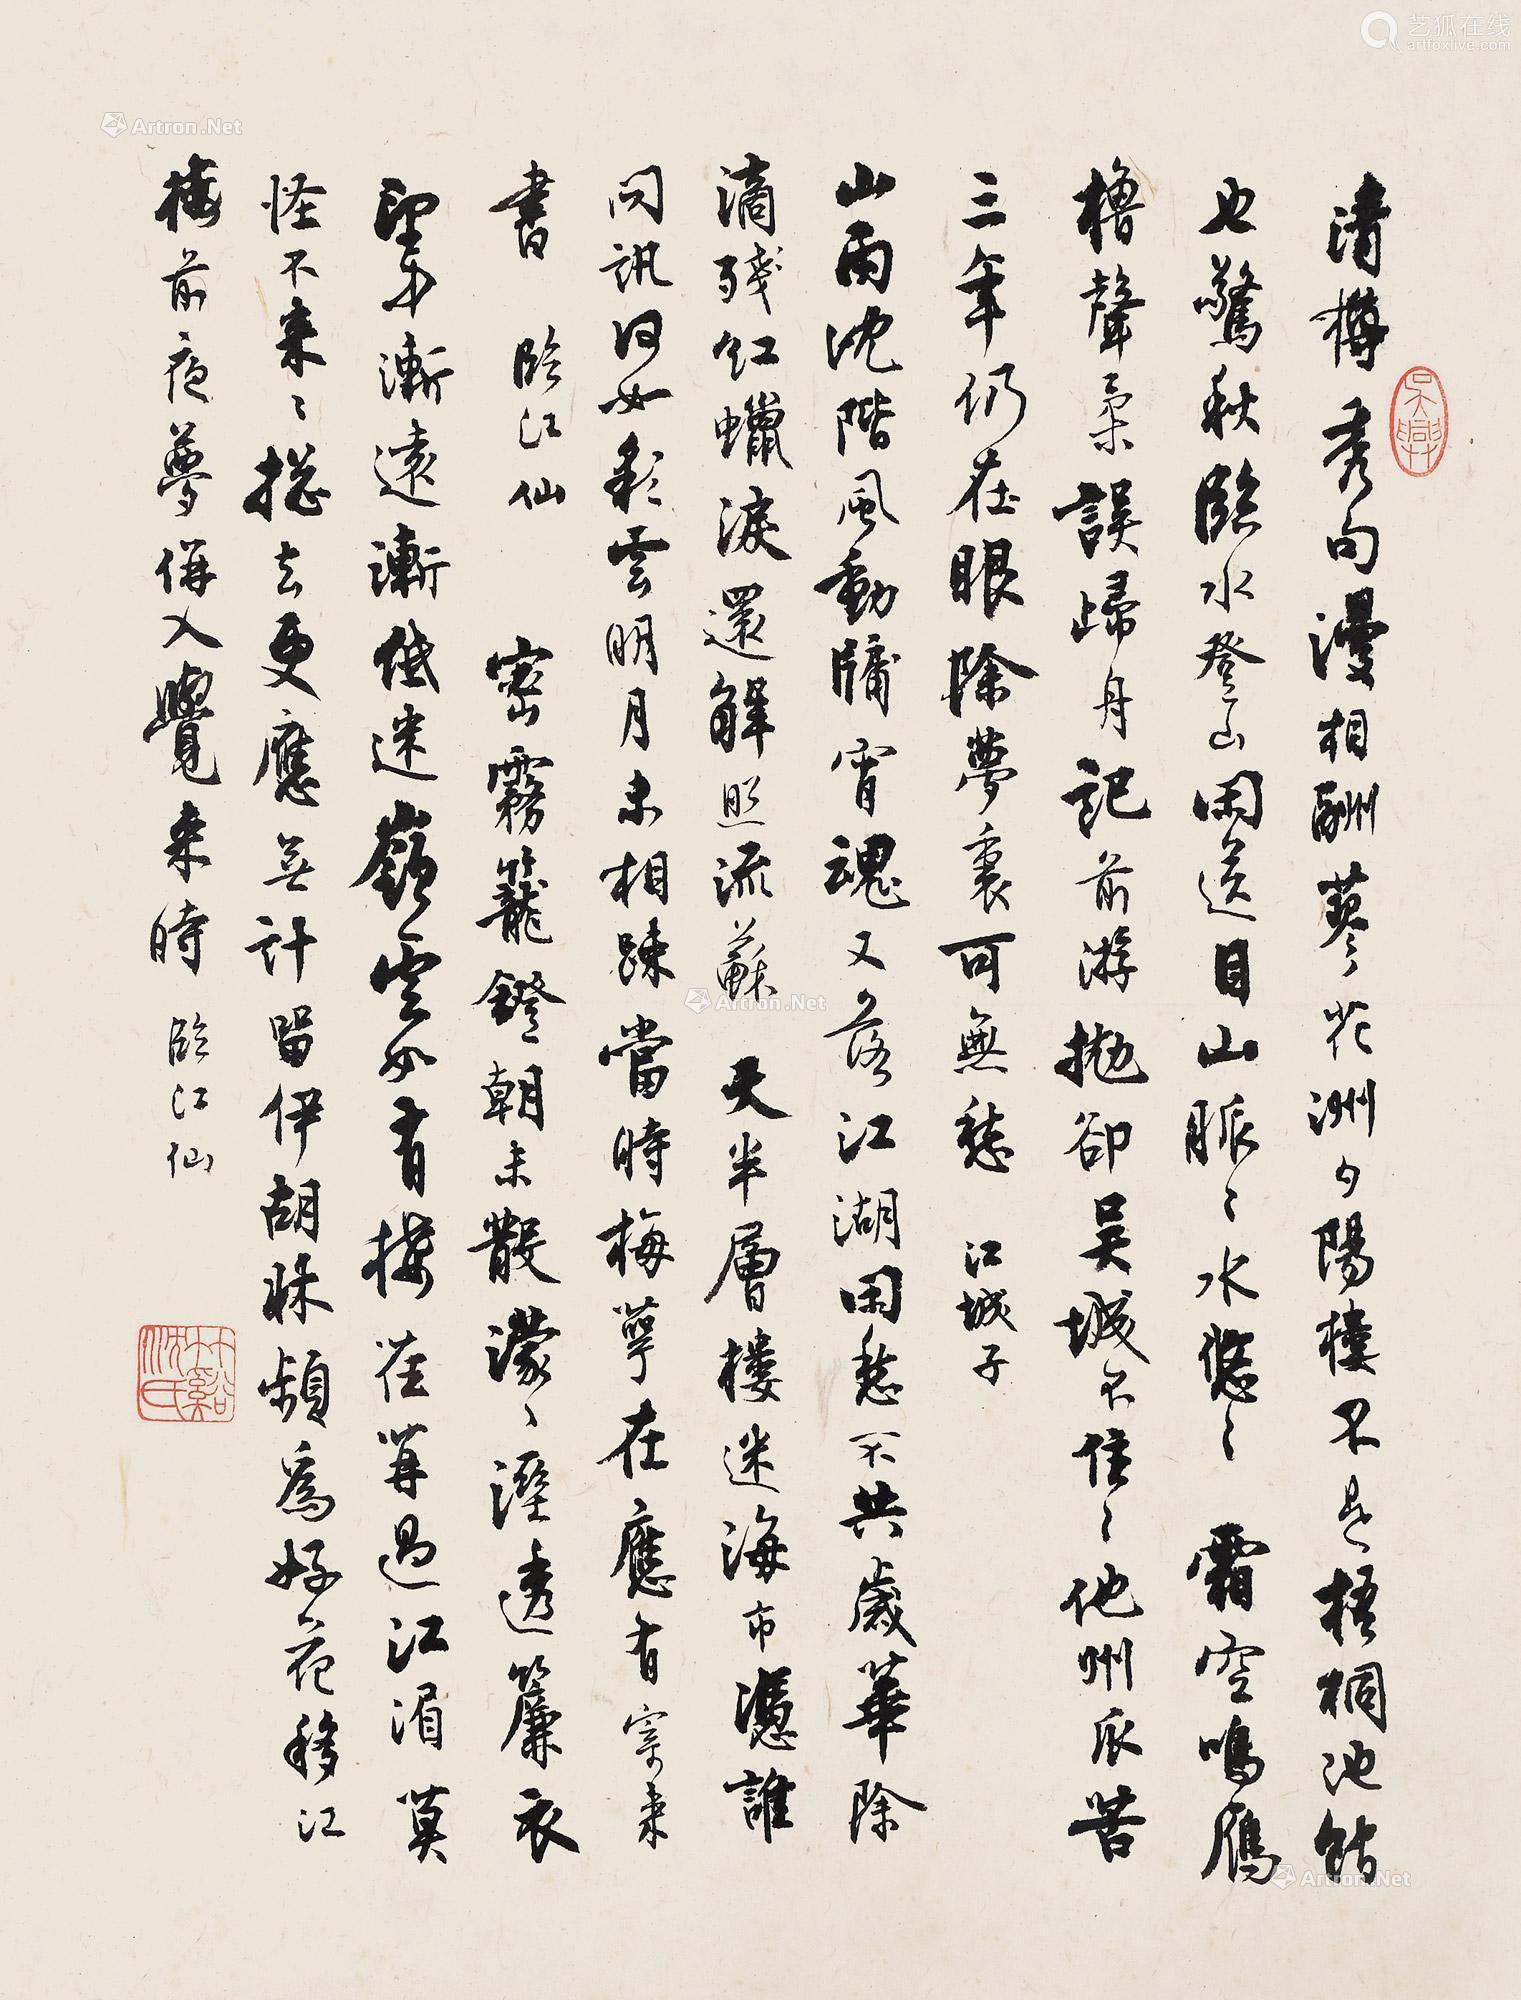 清樽秀句漫相酬蓼花洲夕陽樓不是梧桐池館
也驚秋臨水登山閑送目山脈〻水悠〻霜空鳴雁
櫓聲柔誤歸舟記前游拋卻吳城不住〻他州辰苦
三年仍在眼除夢裏可無愁 江城子
山雨沈階風動牖宵魂又落江湖閑愁不共歲華除
滴殘紅蠟淚還解照流蘇 天半層樓迷海市憑誰
問訊何如彩雲明月未相疎當時梅萼在應有寄來
書 臨江仙 密霧籠鐙朝未散濛〻溼透簾衣
望中漸遠漸低迷嶺雲如有樓在莫過江湄莫
怪不來〻揔去更應無計留伊胡牀頻為好花移江
樓前夜夢併入覺来時 臨江仙
吳興
竹谿沈氏
艺狐在线
artfoxlive.com
Artron.Net
Artron.Net
Artron.Net